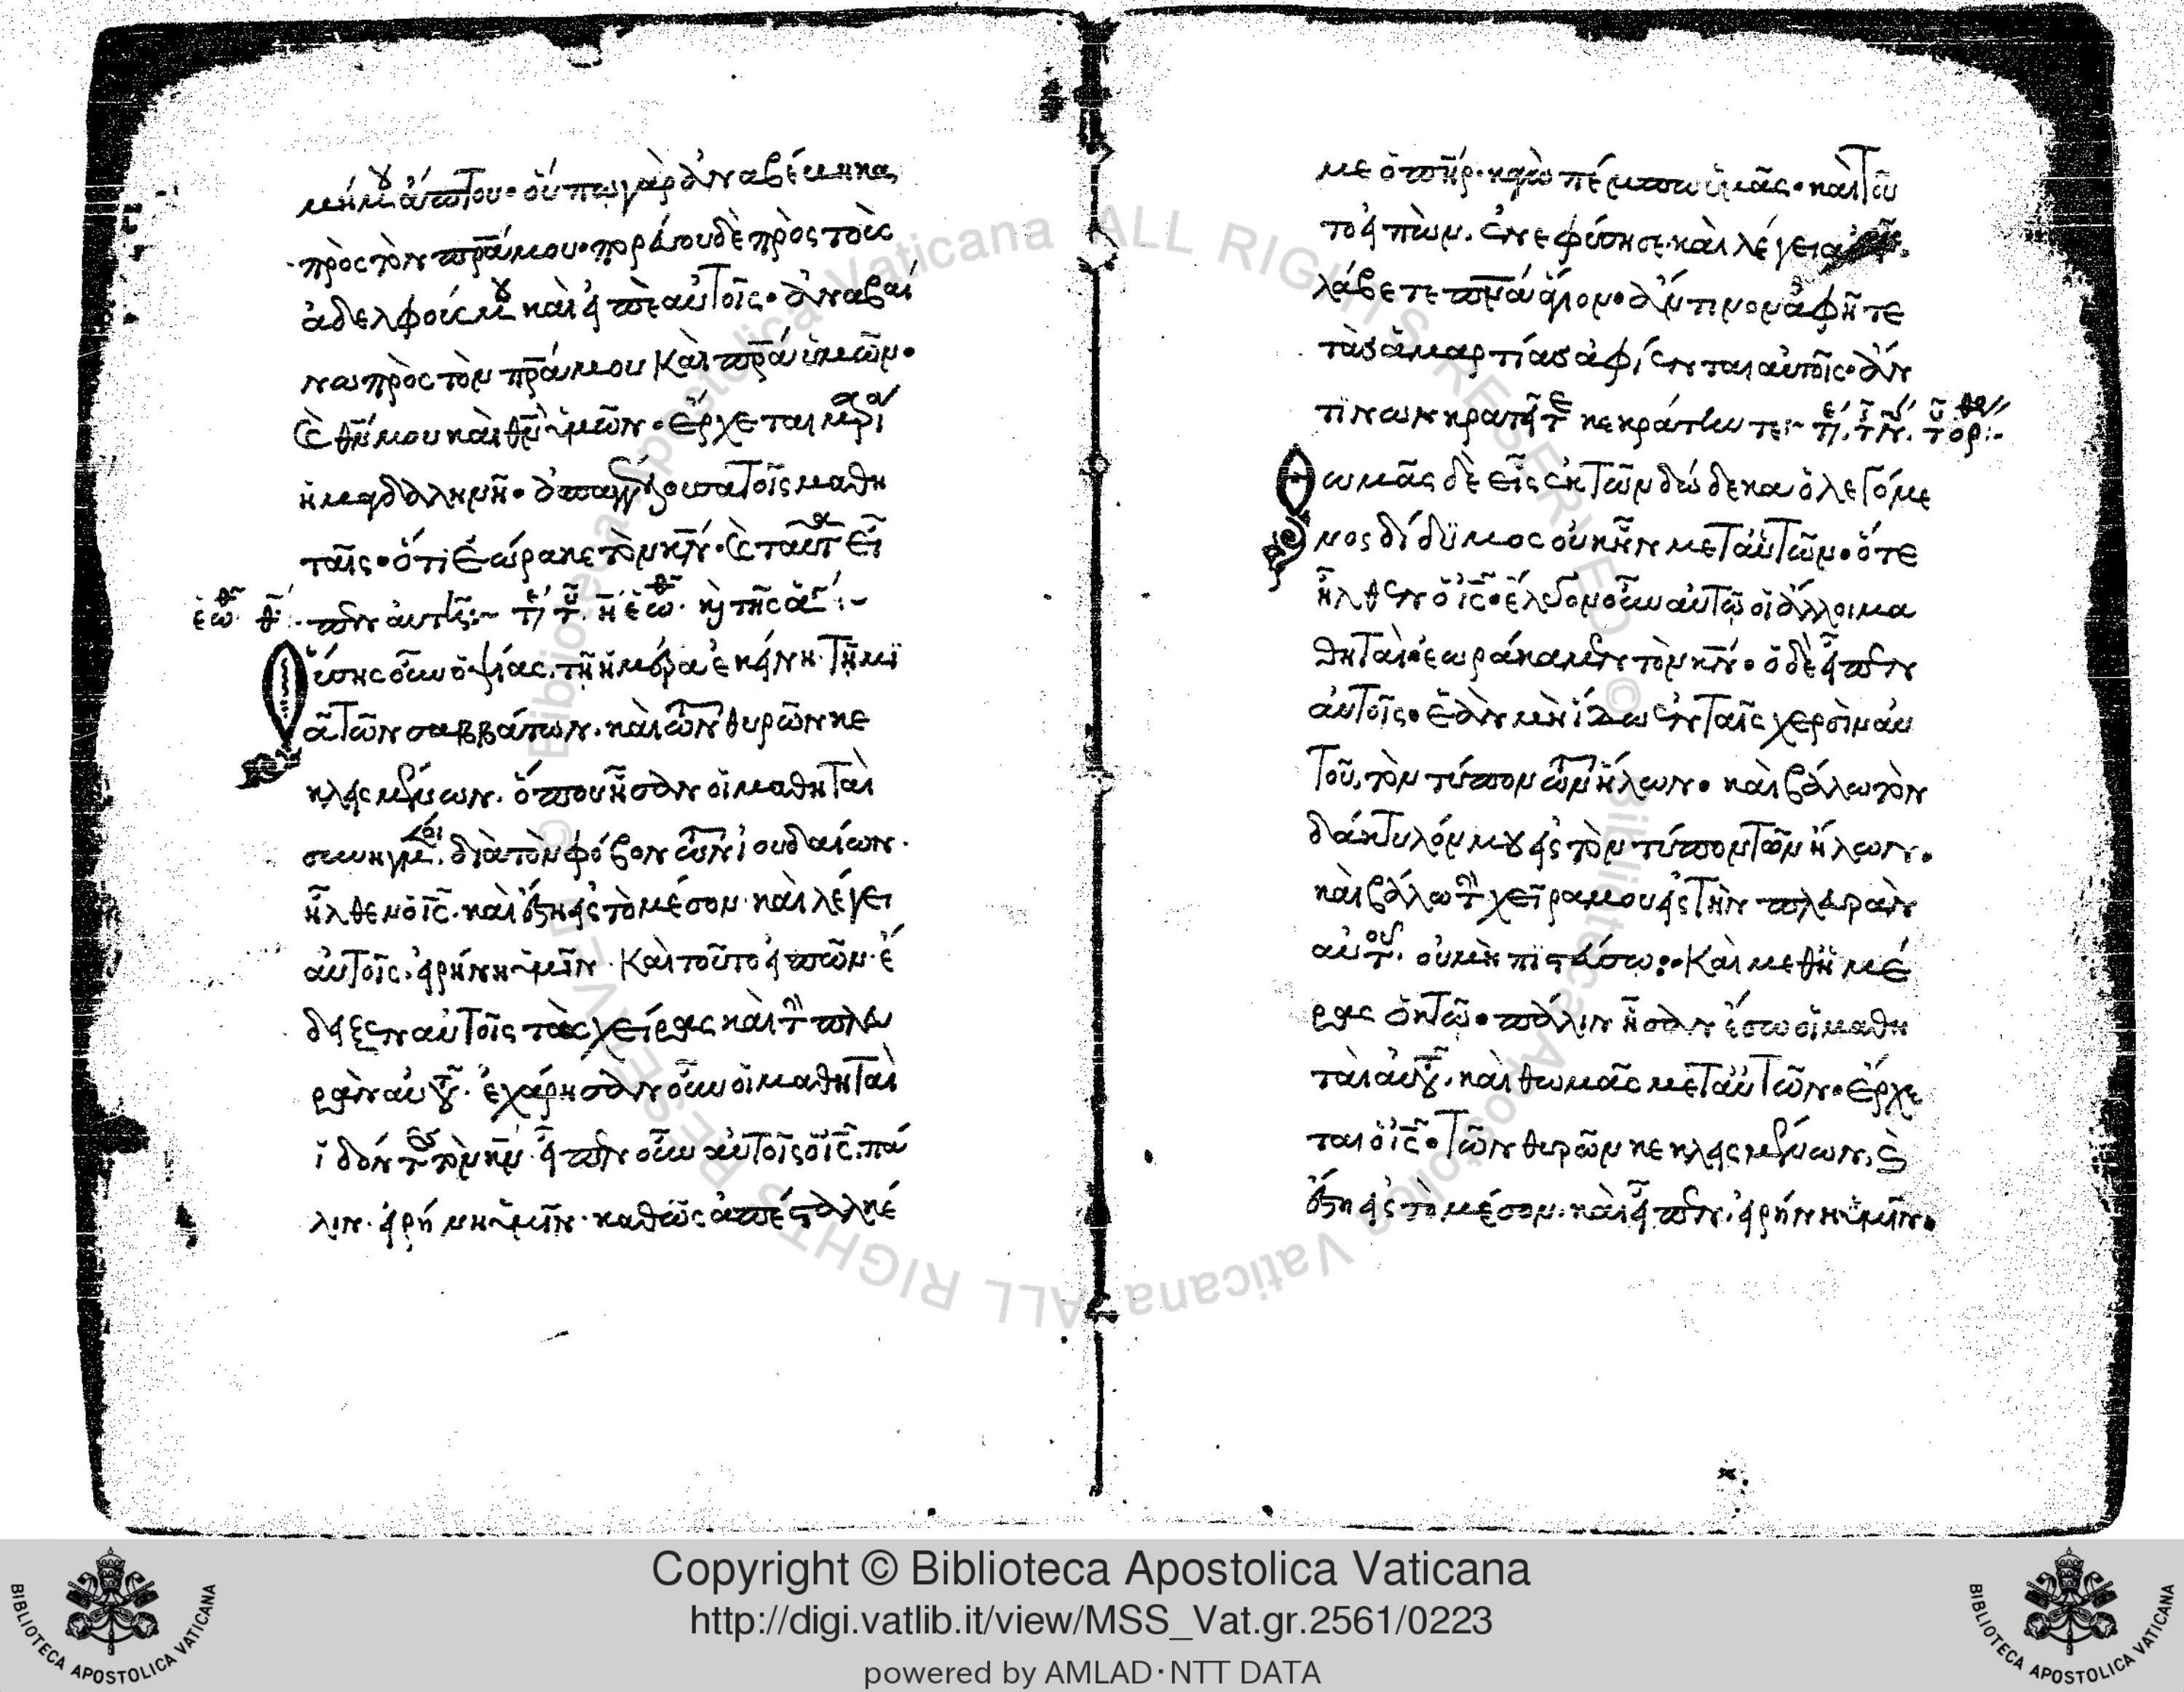 μή μου ἅπτου· οὔπω γὰρ ἀναβέβηκα
πρὸς τὸν πρ̅α μου· πορεύου δὲ πρὸς τοὺς
ἀδελφούς μου καὶ εἰπὲ αὐτοῖς· ἀναβαί
νω πρὸς τὸν πρ̅α μου καὶ πρ̅α ὑμῶν·
καὶ θν̅ μου καὶ θν̅ ὑμῶν· ἔρχεται μαρί
ἡ μαγδαληνῆ· ἀπαγγέλλουσα τοῖς μαθη
ταῖς· ὅτι ἑώρακε τὸν κν̅· καὶ ταῦτα εἶ
πεν αὐτῆ:~
Οὔσης οὖν ὀψίας τῆ ἡμέρα ἐκείνη τῆ μϊ
ᾶ τῶν σαββάτων· καὶ τῶν θυρῶν κε
κλεισμένων· ὅπου ἦσαν οἱ μαθηταὶ
συνηγμένοι· διὰ τὸν φόβον τῶν ἰουδαίων·
ἦλθεν ὁ ις̅· καὶ ἔστη εἰς τὸ μέσον· καὶ λέγει
αὐτοῖς· εἰρήνη ὑμῖν· καὶ τοῦτο εἰπὼν· ἔ
δειξεν αὐτοῖς τὰς χεῖρας καὶ τὴν πλευ
ρὰν αὐτοῦ· ἐχάρησαν οὖν οἱ μαθηταὶ
ἰδόντες τὸν κν̅· εἶπεν οὖν αὐτοῖς ὁ ις̅· πά
λιν· εἰρήνη ὑμῖν· καθὼς ἀπέσταλκέ
με ὁ πηρ̅· κἀγὼ πέμπω ὑμᾶς· καὶ τοῦ
το εἰπὼν· ἐνεφύσησε· καὶ λέγει αὐτοῖς·
λάβετε πνα̅ ἅγιον· ἄν τινον ἀφῆτε
τὰς ἁμαρτίας ἀφίενται αὐτοῖς· ἄν
τινων κρατῆτε κεκράτηντε:~
Θωμᾶς δὲ εἷς ἐκ τῶν δώδεκα ὁ λεγόμε
νος δίδϋμος οὐκ ἦν μετ αὐτῶν· ὅτε
ἦλθεν ὁ ις̅· ἔλεγον οὖν αὐτῷ οἱ ἄλλοι μα
θηταὶ· ἑωράκαμεν τὸν κν̅· ὁ δὲ εἶπεν
αὐτοῖς· ἐὰν μὴ ἴδω ἐν ταῖς χερσὶν αὐ
τοῦ, τὸν τύπον τῶν ἥλων· καὶ βάλω τὸν
δάκτυλόν μου εἰς τὸν τύπον τῶν ἥλων·
καὶ βάλω τὴν χεῖρα μου εἰς τὴν πλευρὰν
αὐτοῦ· οὐ μὴ πιστεύσω:· Καὶ μεθ ἡμέ
ρας ὀκτὼ· πάλιν ἦσαν ἔσω οἱ μαθη
ταὶ αὐτοῦ· καὶ θωμᾶς μετ αὐτῶν· ἔρχε
ται ὁ ις̅· τῶν θυρῶν κεκλεισμένων, καὶ
ἔστη εἰς τὸ μέσον· καὶ εἶπεν· εἰρήνη ὑμῖν·
Copyright © Biblioteca Apostolica Vaticana
http://digi.vatlib.it/view/MSS_Vat.gr.2561/0223
powered by AMLAD·NTT DATA
BIBLIOTECA APOSTOLICA VATICANA
BIBLIOTECA APOSTOLICA VATICANA
© Biblioteca Apostolica Vaticana ALL RIGHTS RESERVED
© Biblioteca Apostolica Vaticana ALL RIGHTS RESERVED